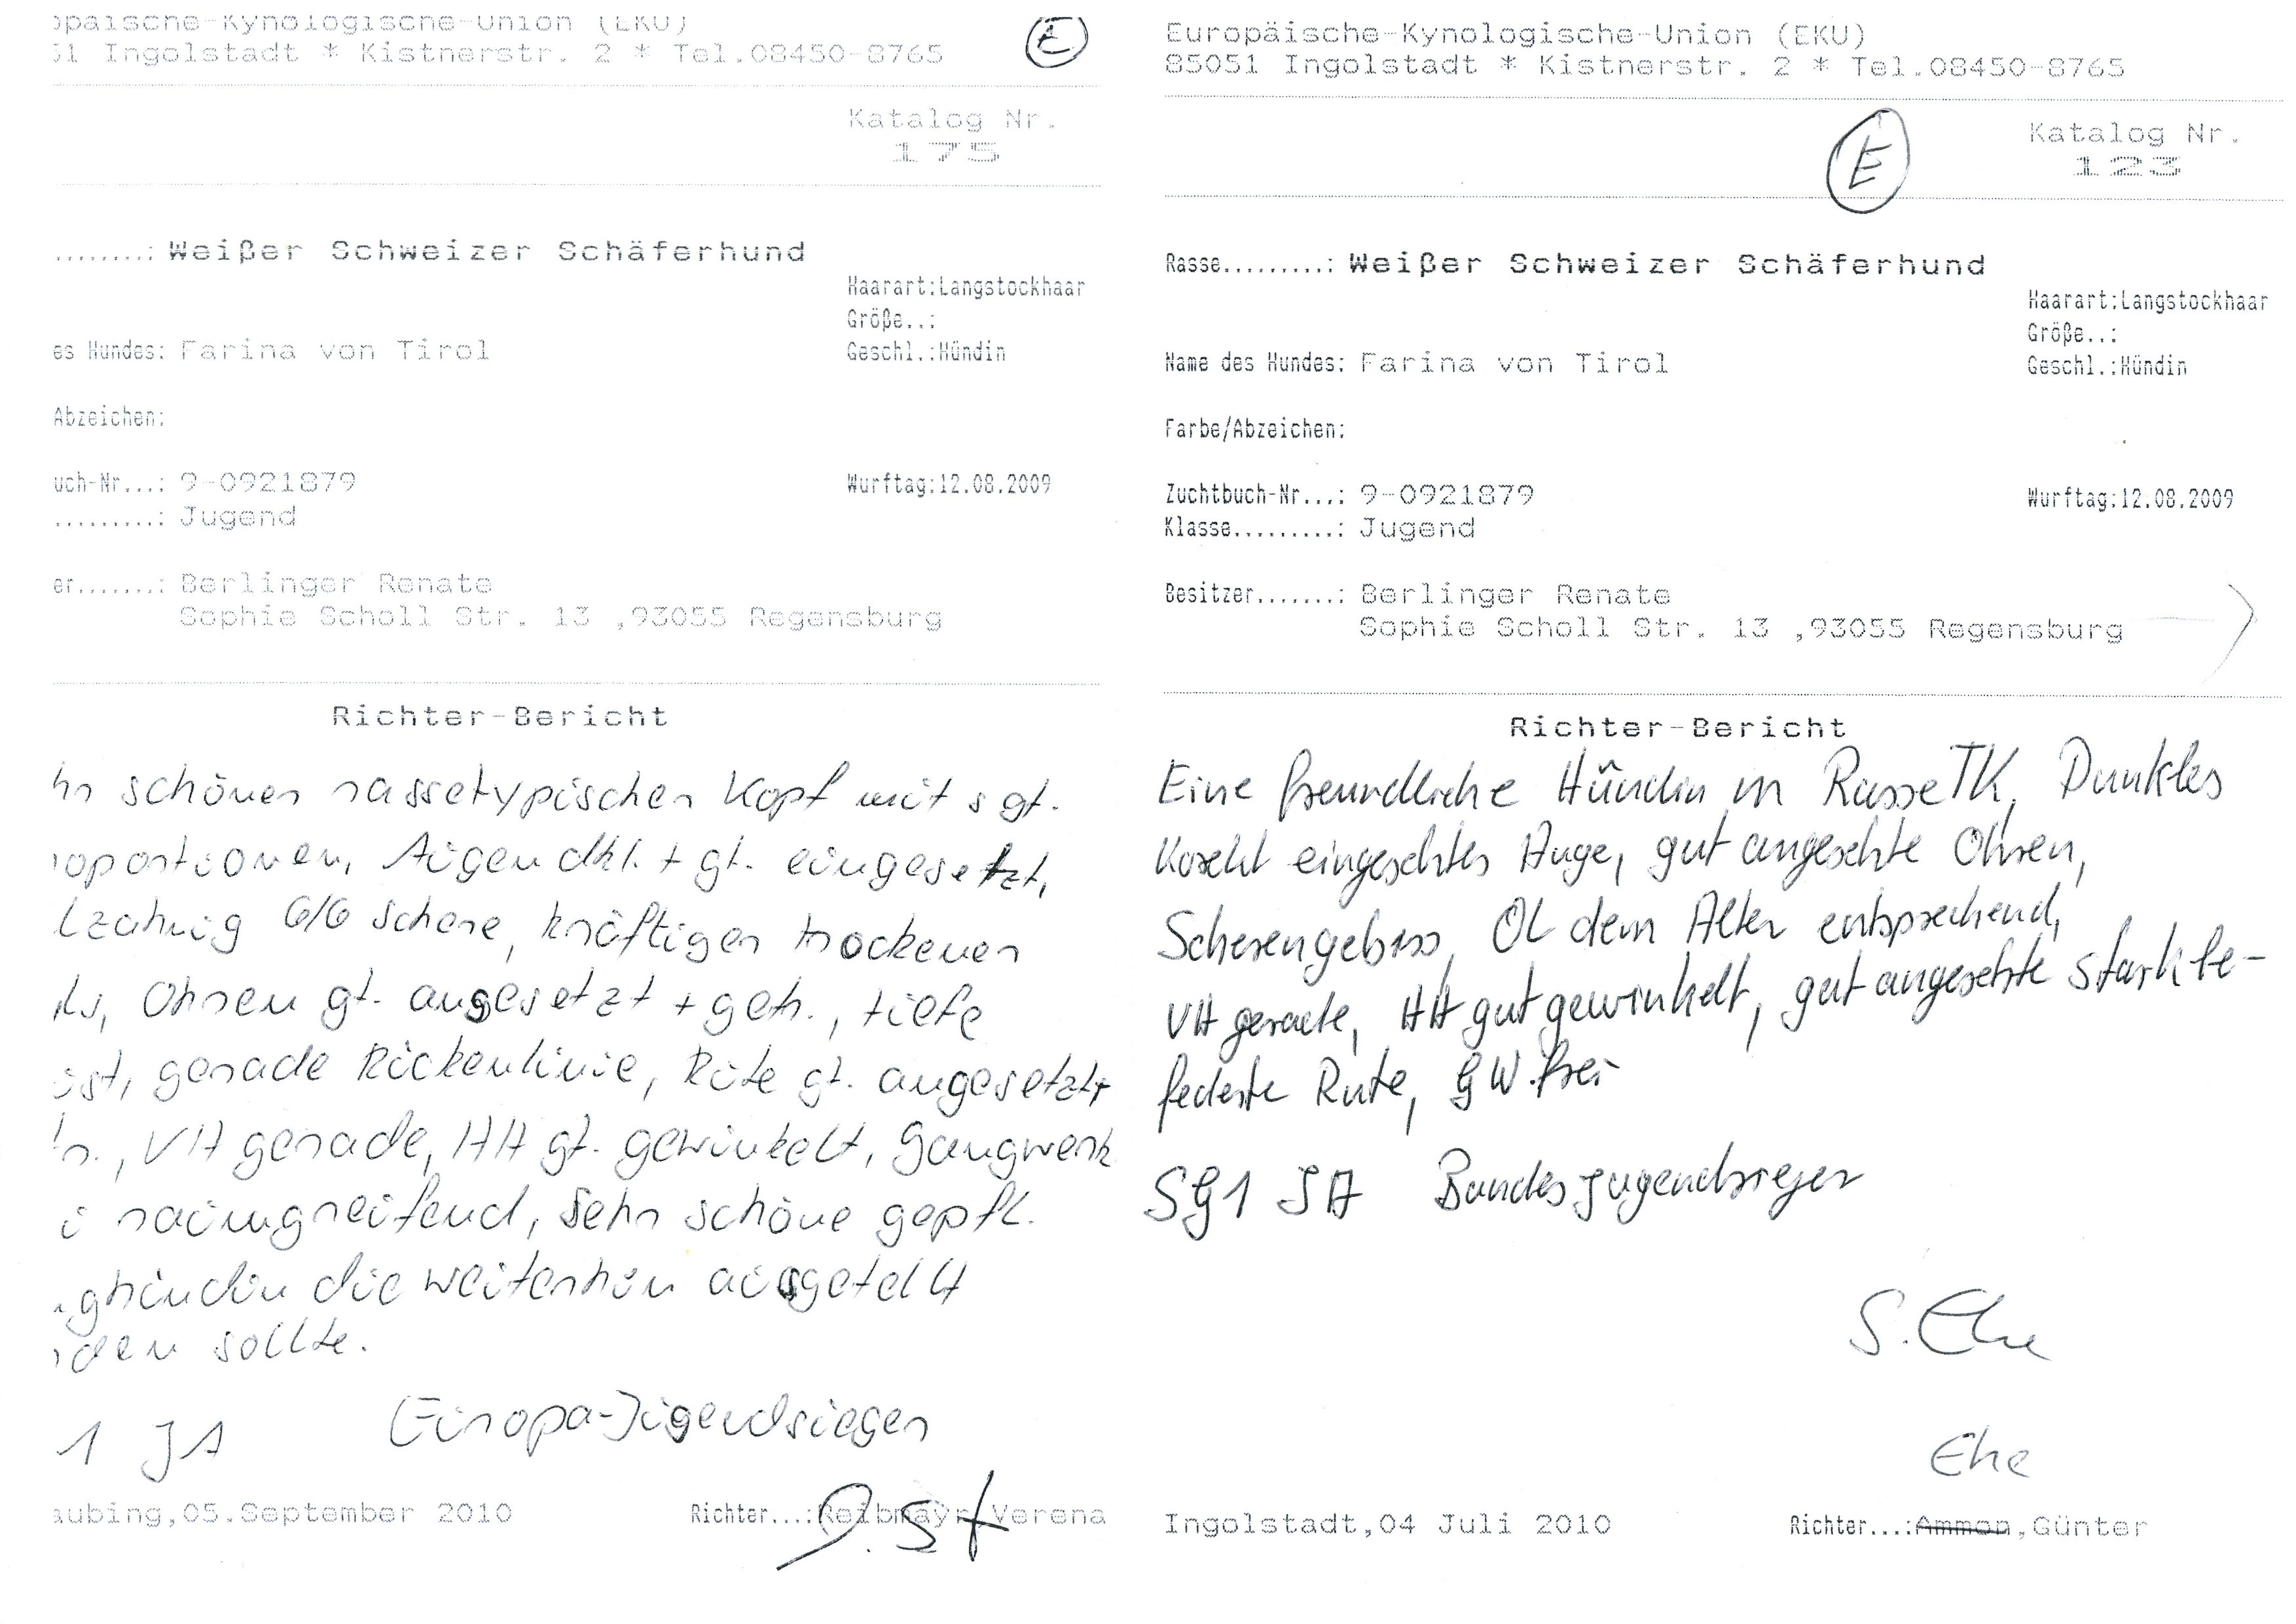 opäische-Kynologische-Union (EKU)
51 Ingolstadt * Kistnerstr. 2 * Tel.08450-8765
E
Katalog Nr.
175
.........: Weißer Schweizer Schäferhund
Haarart:Langstockhaar
Größe..:
es Hundes: Farina von Tirol
Geschl.:Hündin
Abzeichen:
uch-Nr...: 9-0921879
Wurftag:12.08.2009
.........: Jugend
er.......: Berlinger Renate
Sophie Scholl Str. 13 ,93055 Regensburg
Richter-Bericht
hr schöner rassetypischer Kopf mit sgt.
oportionen, Augen dkl. + gt. eingesetzt,
lzahnig 6/6 Schere, kräftiger trockener
ls, Ohren gt. angesetzt + getr., tiefe
ust, gerade Rückenlinie, Rute gt. angesetzt +
tr., VH gerade, HH gt. gewinkelt, Gangwerk
i raumgreifend, Sehr schöne gepfl.
ghündin die weiterhin ausgetellt
den sollte.
1 JA (Europa-Jugendsieger
aubing,05.September 2010
Richter...:Reibmayr Verena
Europäische-Kynologische-Union (EKU)
85051 Ingolstadt * Kistnerstr. 2 * Tel.08450-8765
E
Katalog Nr.
123
Rasse.........: Weißer Schweizer Schäferhund
Haarart:Langstockhaar
Größe..:
Name des Hundes: Farina von Tirol
Geschl.:Hündin
Farbe/Abzeichen:
Zuchtbuch-Nr...: 9-0921879
Wurftag:12.08.2009
Klasse.........: Jugend
Besitzer.......: Berlinger Renate
Sophie Scholl Str. 13 ,93055 Regensburg
Richter-Bericht
Eine freundliche Hündin in Rasse TK, Dunkles
Korekt eingesetztes Auge, gut angesetzte Ohren,
Scherengebiss, OL dem Alter entsprechend,
VH gerade, HH gut gewinkelt, gut angesetzte stark be-
federte Rute, GW. frei
SG1 JA Bundesjugendsieger
S. Ehe
Ehe
Ingolstadt,04 Juli 2010
Richter...:Ammon,Günter